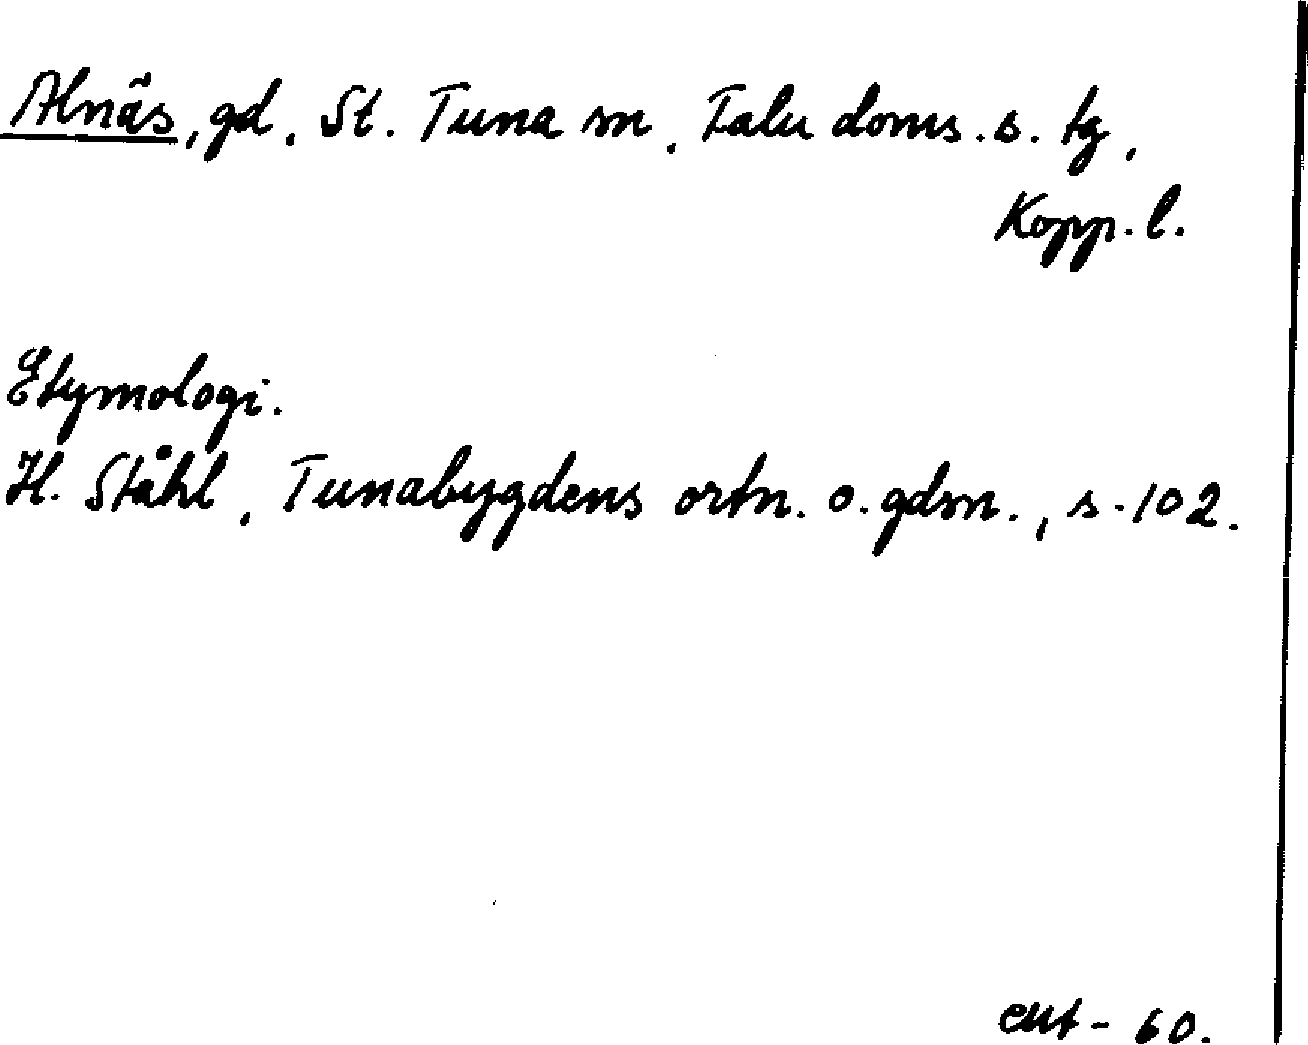 Alnäs, gd, St. Tuna sn, Falu doms. s. tg,
Kopp. l.
Etymologi.
H. Ståhl, Tunabygdens ortn. o. gdsn., s. 102.
60.